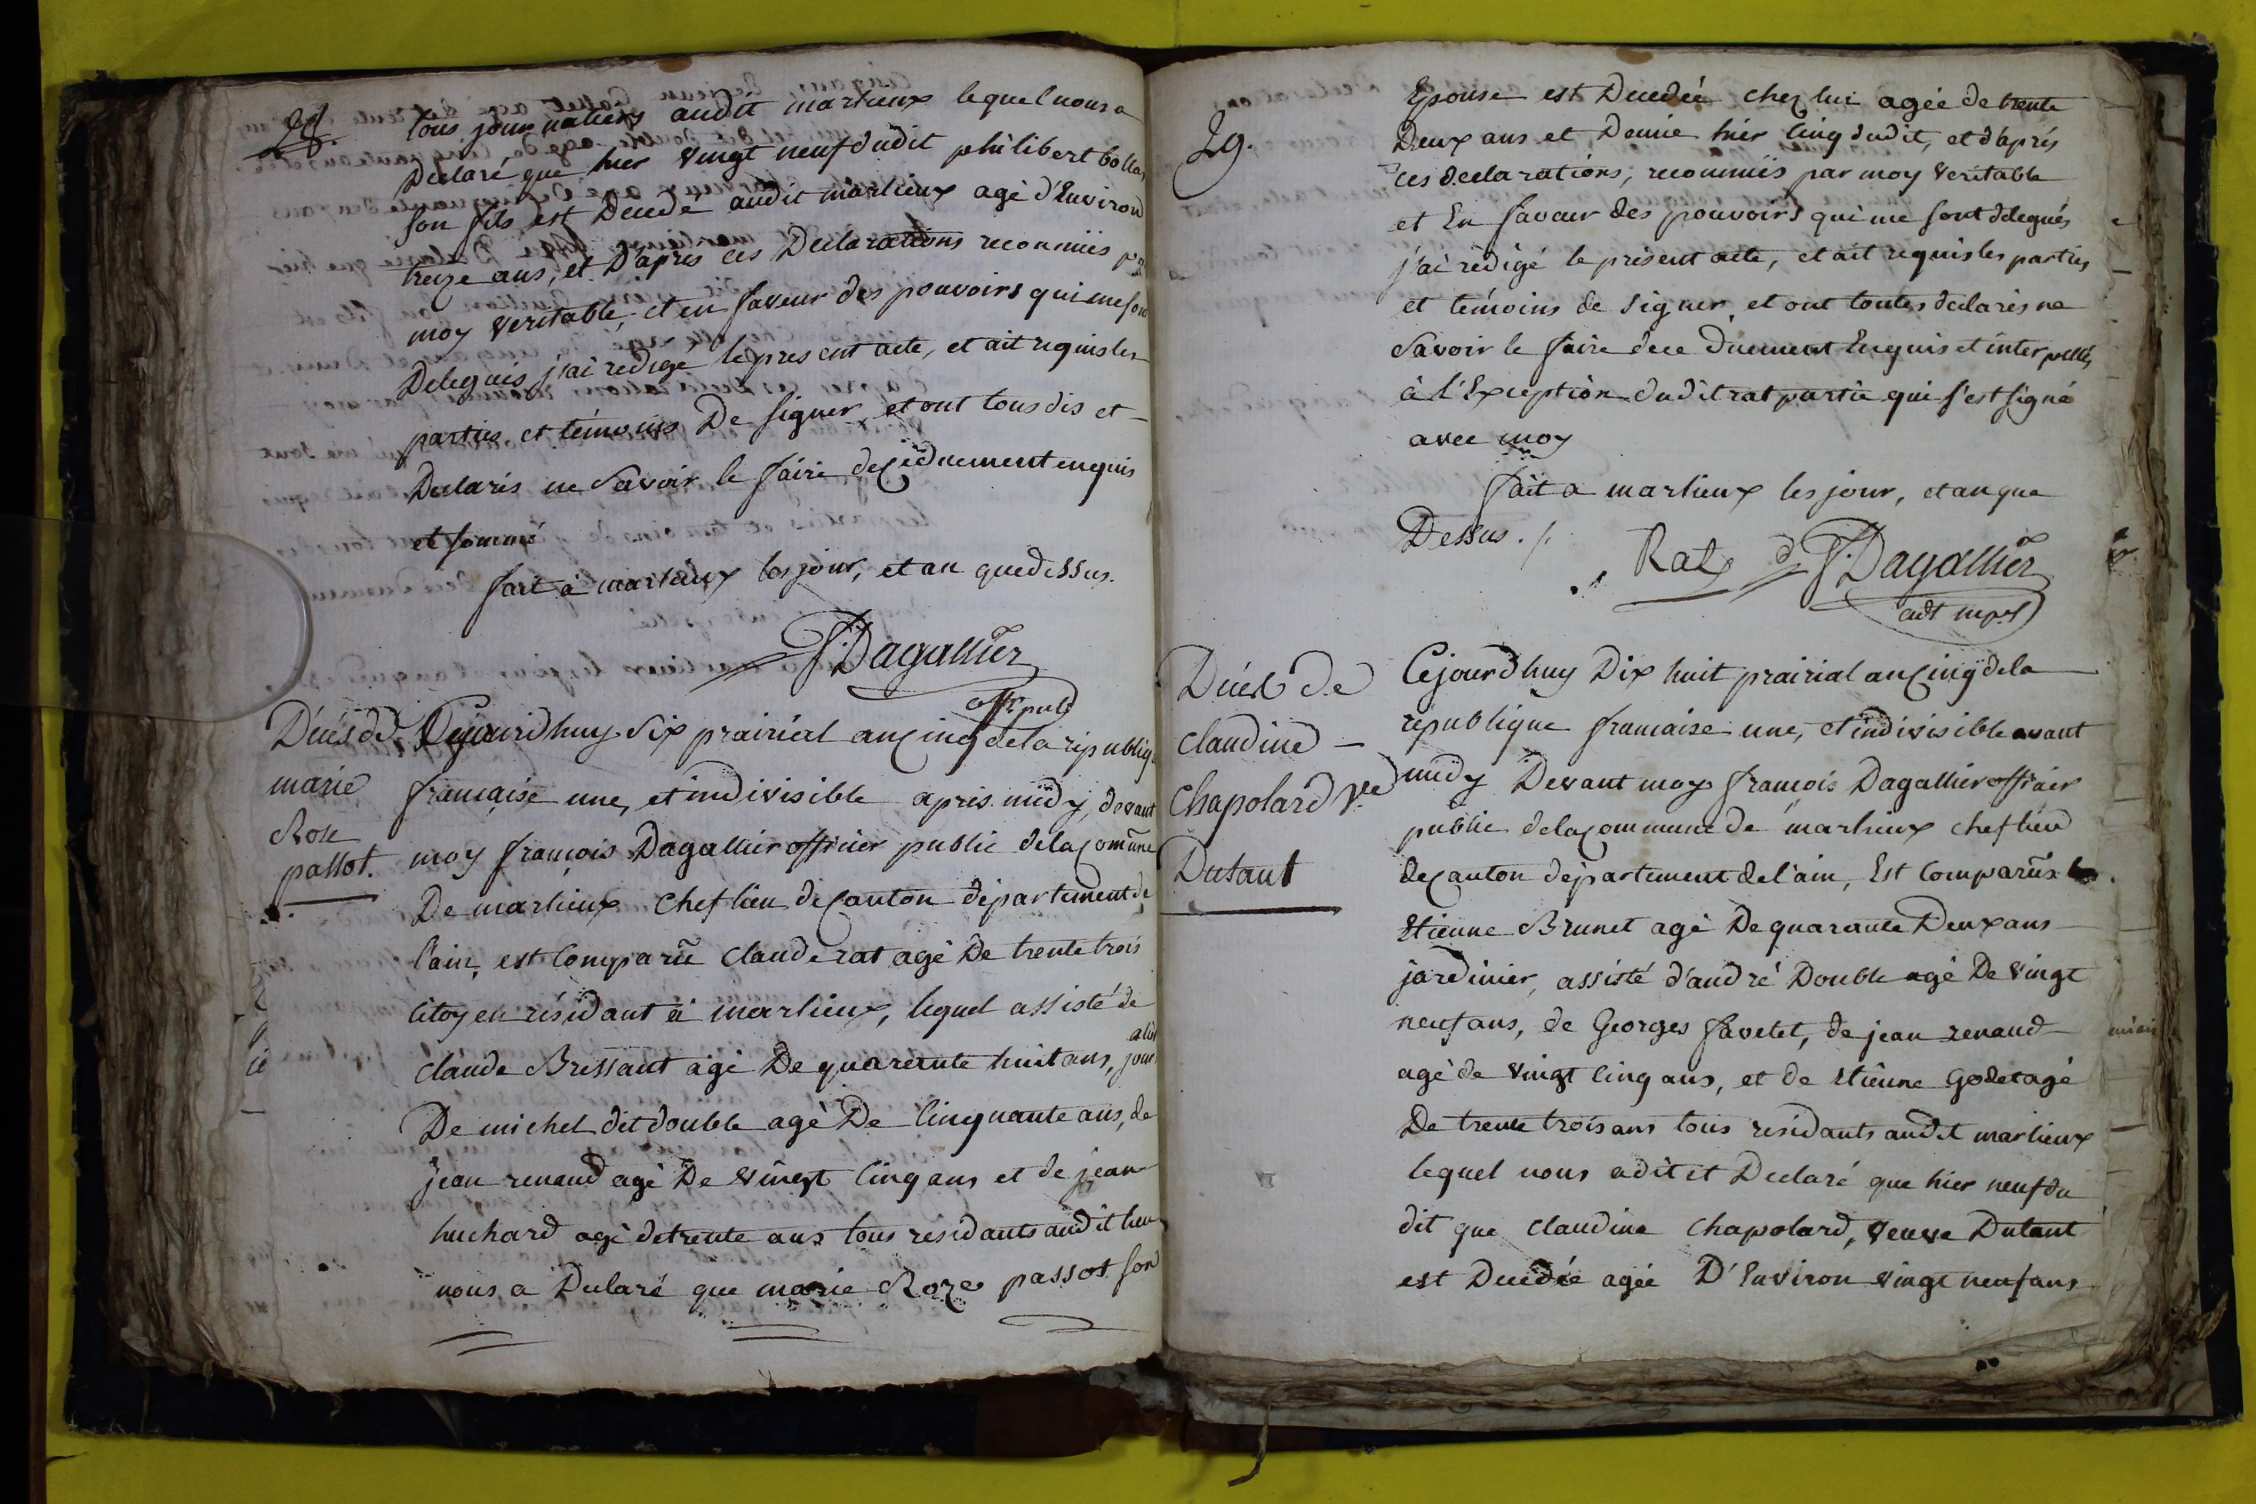 28.
tous journaliers audit marlieux lequel nous a
Declaré que hier vingt neuf dudit philibert
son fils est Decedé audit marlieux agé d'Environ
treize ans, et D'apres ces Declarations reconnuës par
moy veritable, et en faveur des pouvoirs qui me sont
Delegués j'ai redigé le present acte, et ait requis les
parties et témoins De signer et ont tous dis et
Declarés ne Savoir le faire de ce duement enquis
et sommé
fait à marlieux les jour, et an que dessus.
F. Dagallier
off. pub
Décés de
marie
Rose
passot.
Cejourdhuy Six prairial an Cinq de la republiq
française une, et indivisible après midy, devant
moy françois Dagallier officier public de la Comune
De marlieux chef lieu de Canton département de
l'ain, est Comparu claude rat agé De trente trois
Citoyen résidant à marlieux, lequel assisté de
claude Brissant agé De quarente huit ans,
De michel dit double agé De Cinquante ans, de
jean renaud agé De vingt Cinq ans et de jean
huchard agé de trente ans tous residants audit lieu
nous a Declaré que marie Roze passot son
29.
Epouse est Decedée chez lui agée de trente
Deux ans et Demie hier Cinq dudit, et d'aprés
ces declarations, reconnuës par moy veritable
et En faveur des pouvoirs qui me sont delegués
j'ai rédigé le présent acte, et ait requis les parties
et témoins de signer, et ont toutes declarés ne
Savoir le faire de ce Duement Enquis et interpellés
à l'Exception dudit rat partie qui s'est signé
avec moy
fait a marlieux les jour, et an que
Dessus ./.
Rat F. Dagallier
Décès de
claudine
chapolard Ve
Dutant
Cejourdhuy Dix huit prairial an Cinq de la
republique francaise une, et indivisible avant
midy Devant moy françois Dagallier officier
public de la Commune de marlieux chef lieu
de Canton département de l'ain, Est Comparus
Etienne Brunet agé De quarante Deux ans
jardinier, assisté d'andré Double agé De vingt
neuf ans, de Georges favetet, de jean renaud
agé de vingt Cinq ans, et de Etienne Godet agé
De trente trois ans tous residants audit marlieux
lequel nous a dit et Declaré que hier neuf du
dit que claudine chapolard, veuve Dutant
est Decedée agée D'Environ vingt neuf ans